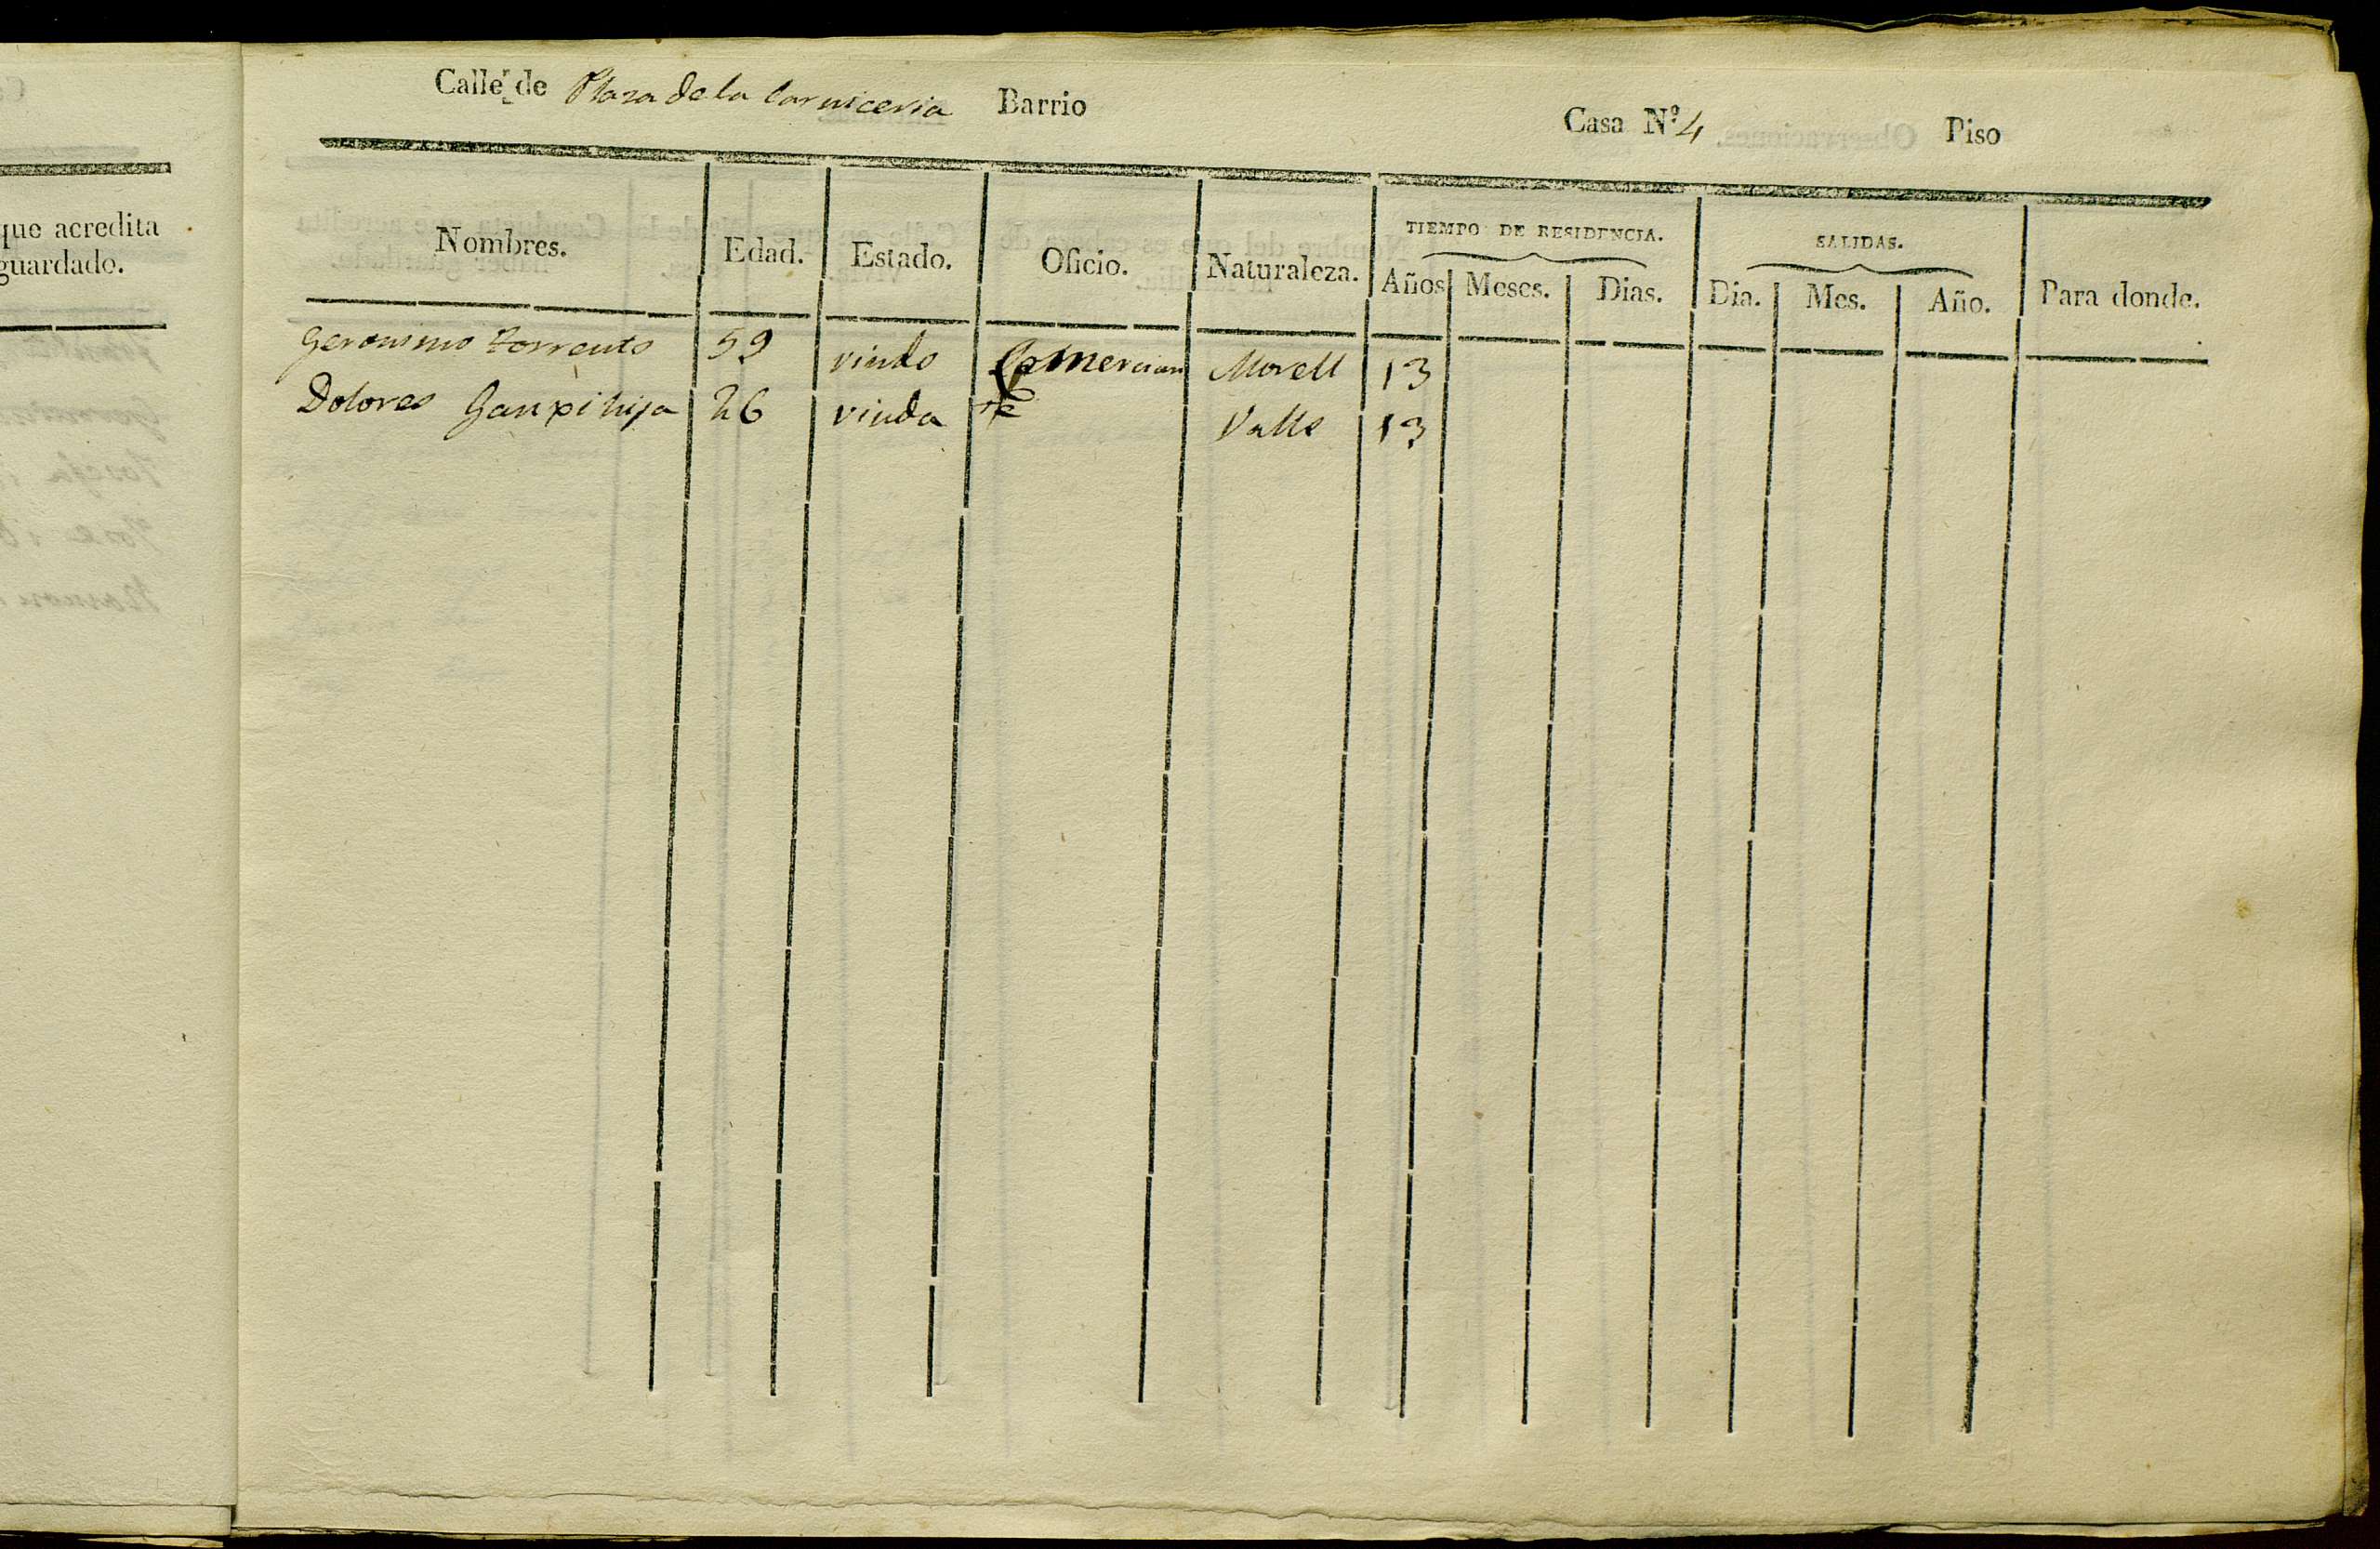 que acredita
guardado.
Calle de Plaza de la Carniceria Barrio Casa Nº 4 Piso
Nombres. Edad. Estado. Oficio. Naturaleza. TIEMPO DE RESIDENCIA. SALIDAS. Para donde.
Años Meses. Dias. Dia. Mes. Año.
Geronimo torrents 59 viudo Comercian Morell 13
te
Dolores hija 26 viuda Valls 13